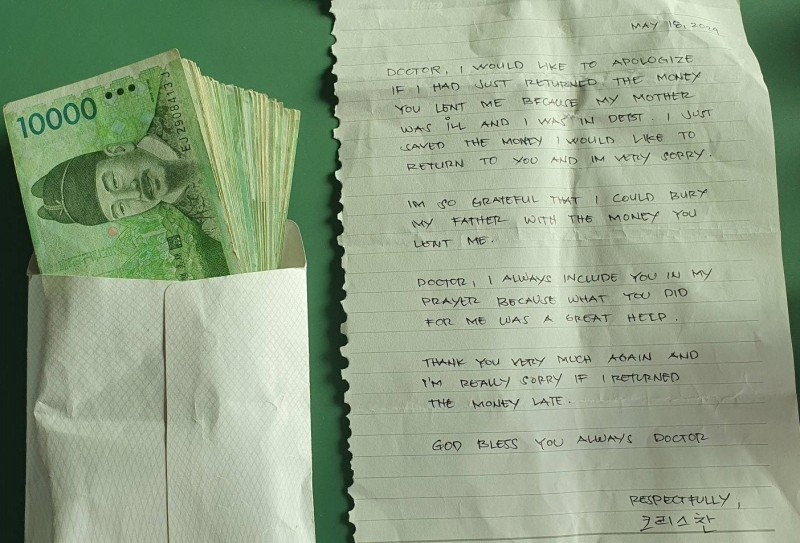 10000
EJ 2908413 J
MAY 18, 2024
DOCTOR, I WOULD LIKE TO APOLOGIZE
IF I HAD JUST RETURNED THE MONEY
YOU LENT ME BECAUSE MY MOTHER
WAS ILL AND I WAS IN DEBT. I JUST
SAVED THE MONEY I WOULD LIKE TO
RETURN TO YOU AND IM VERY SORRY.
IM SO GRATEFUL THAT I COULD BURY
MY FATHER WITH THE MONEY YOU
LENT ME.
DOCTOR, I ALWAYS INCLUDE YOU IN MY
PRAYER BECAUSE WHAT YOU DID
FOR ME WAS A GREAT HELP.
THANK YOU VERY MUCH AGAIN AND
I'M REALLY SORRY IF I RETURNED
THE MONEY LATE.
GOD BLESS YOU ALWAYS DOCTOR
RESPECTFULLY,
크리스찬